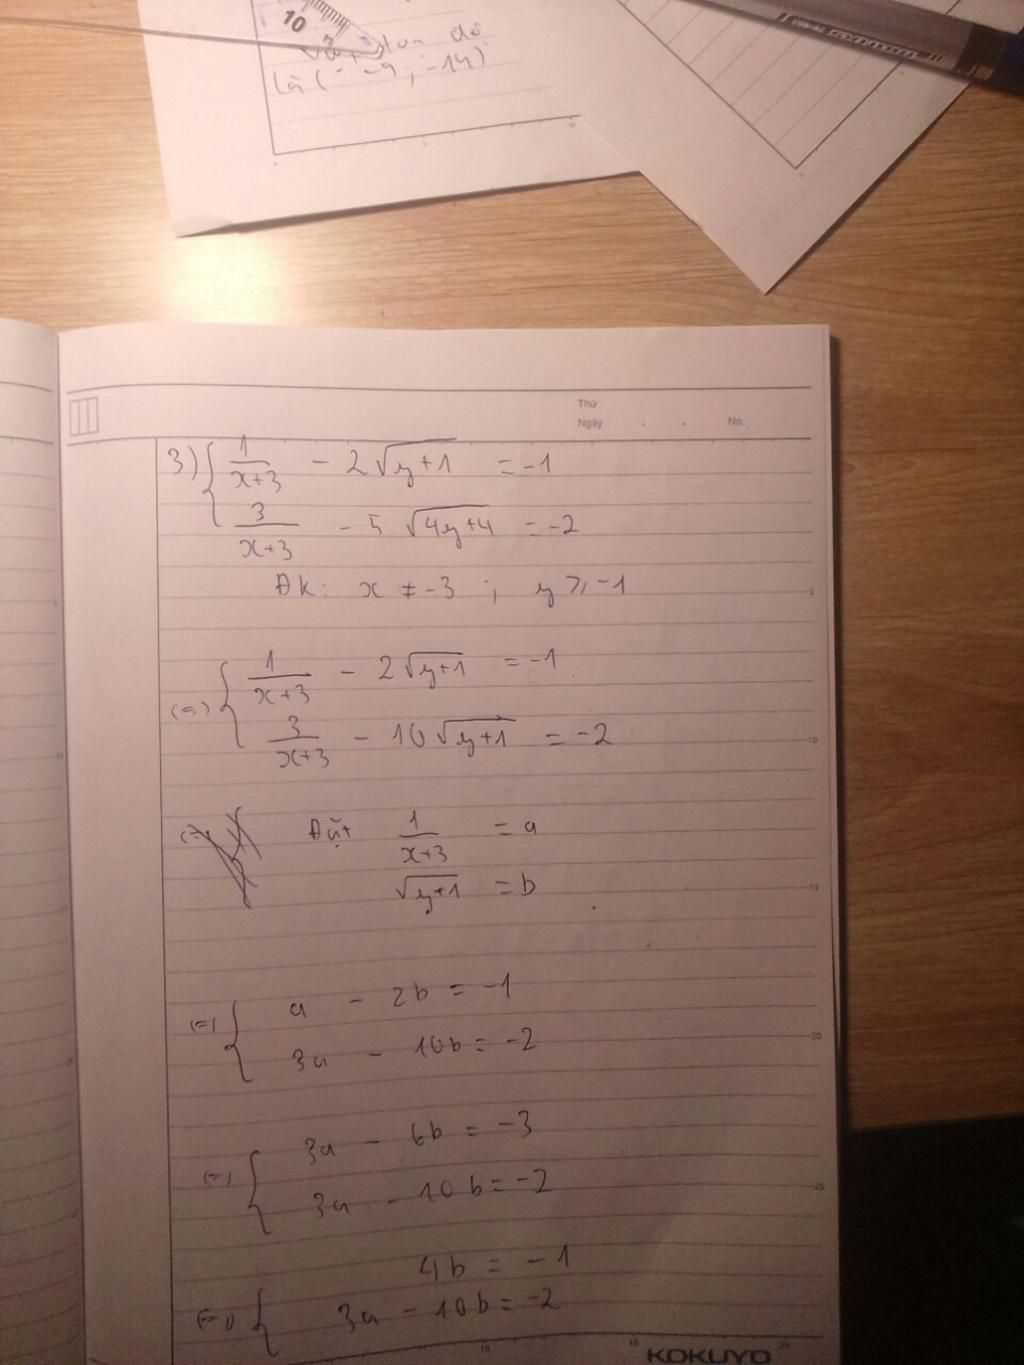 10
là (-9; -14)
Thứ
Ngày . . No.
3) { 1/(x+3) - 2√(y+1) = -1
3/(x+3) - 5√(4y+4) = -2
ĐK: x ≠ -3 ; y ≥ -1
(=) { 1/(x+3) - 2√(y+1) = -1
3/(x+3) - 10√(y+1) = -2
Đặt 1/(x+3) = a
√(y+1) = b
(=) { a - 2b = -1
3a - 10b = -2
(=) { 3a - 6b = -3
3a - 10b = -2
(=) { 4b = -1
3a - 10b = -2
5
10
15
20
25
10
15
20
KOKUYO